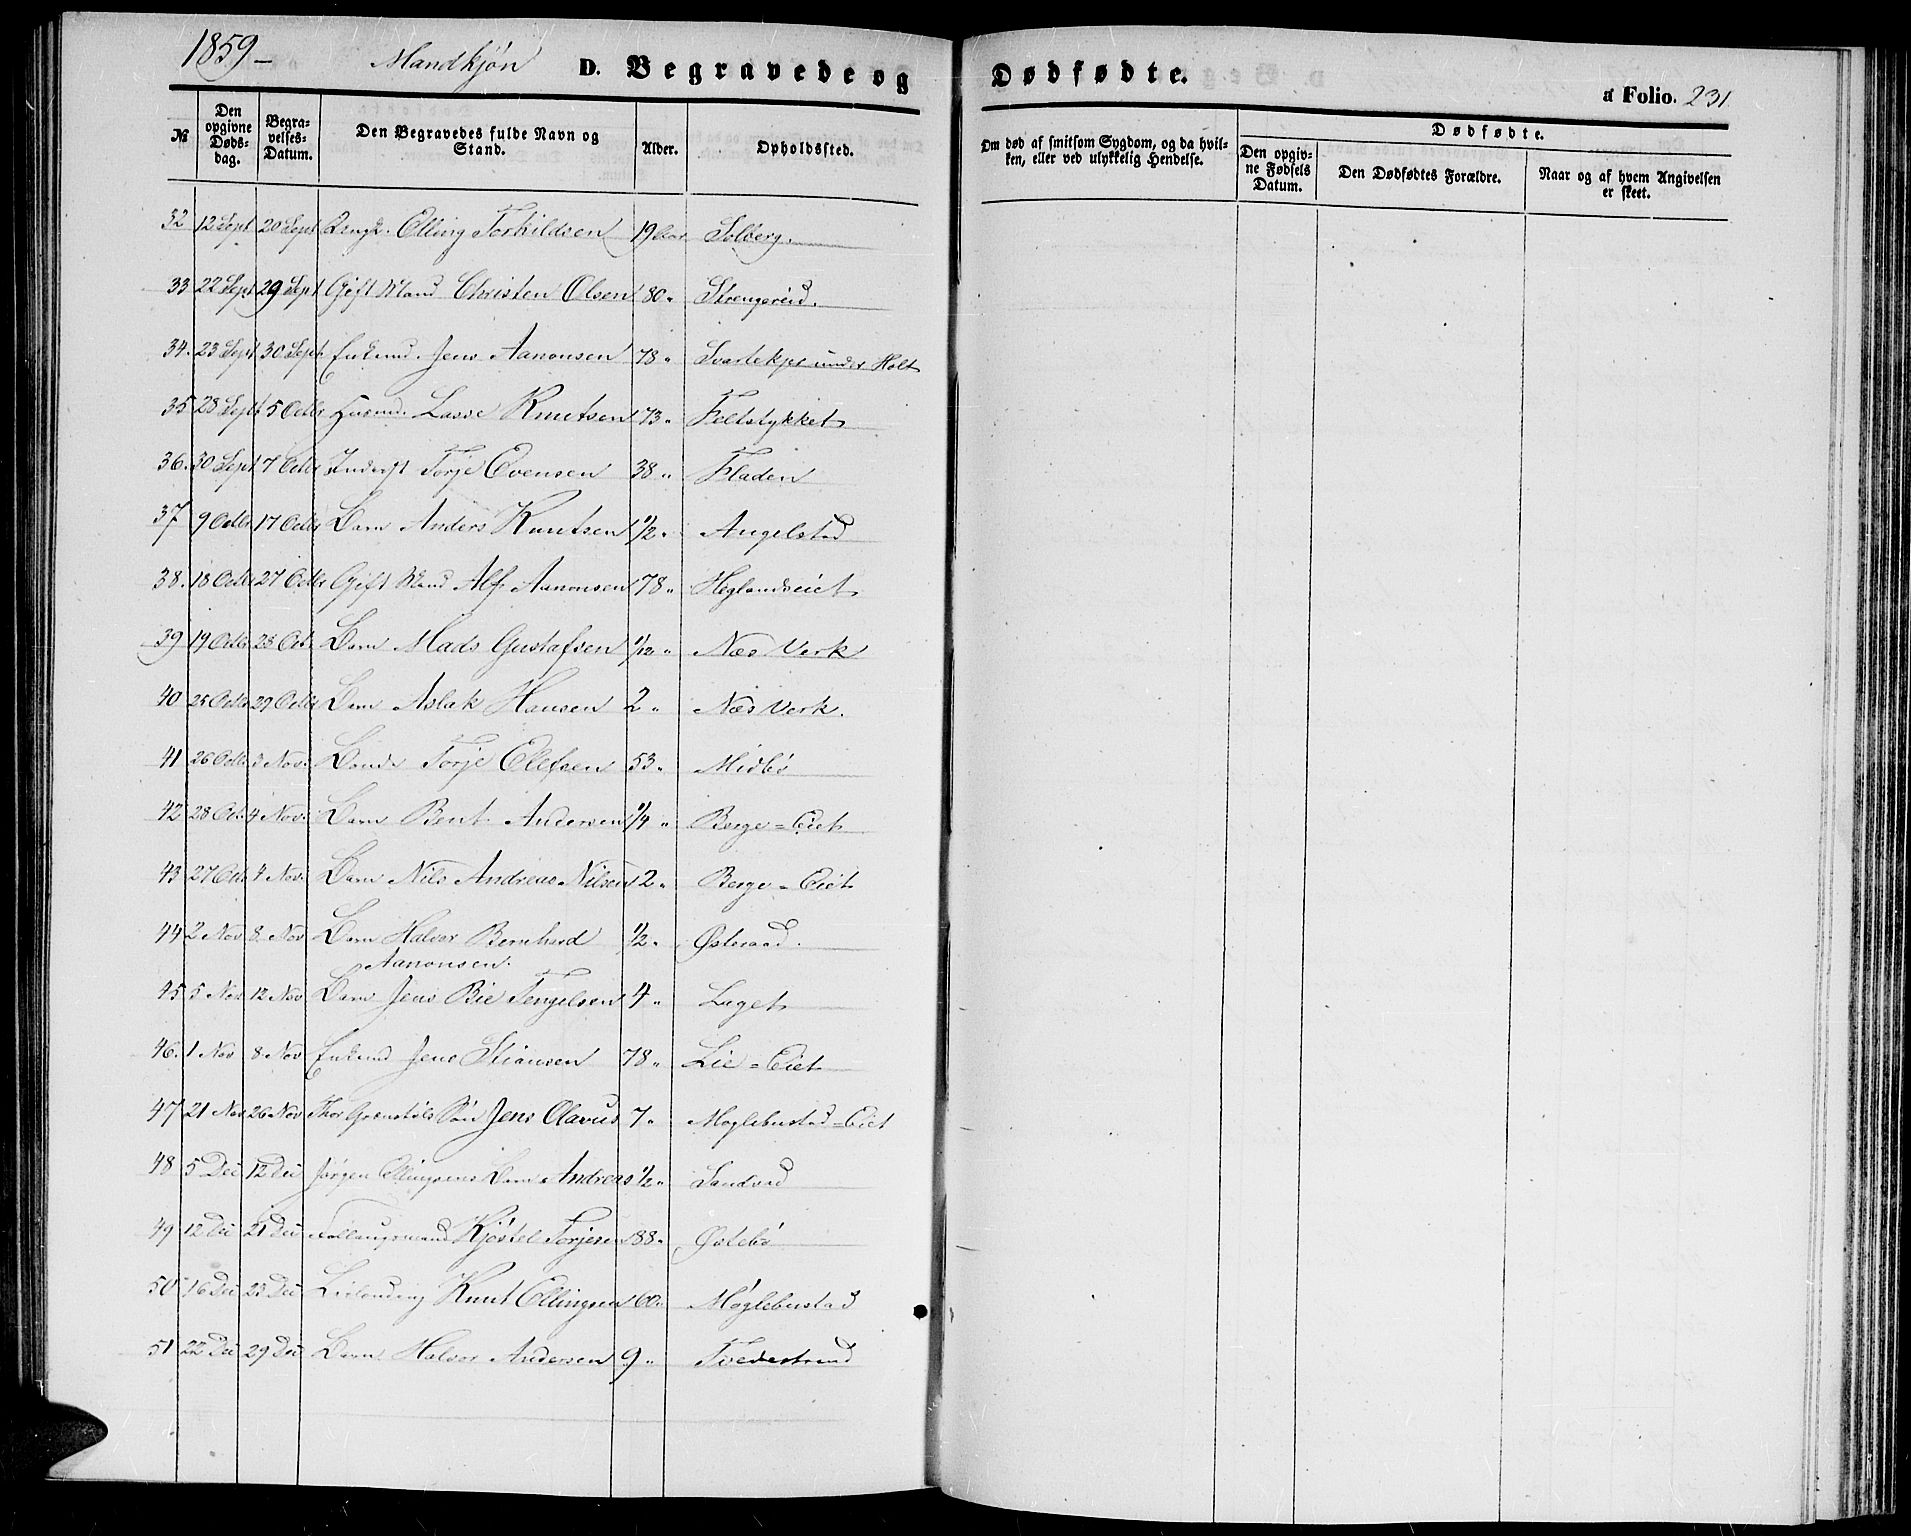 1859- Mandkjøn D. Begravede og Dødfødte.
a Folio. 231
№ Den opgivne Døds-dag. Begra-velses-Datum. Den Begravedes fulde Navn og Stand. Alder. Opholdssted. Om død af smitsom Sygdom, og da hvil-ken, eller ved ulykkelig Hendelse. Dødfødte. Den opgiv-ne Fødsels Datum. Den Dødfødtes Forældre. Naar og af hvem Angivelsen er skeet.
32 12 Sept 20 Sept Elling Torkildsen 19 Aar Solberg.
33 22 Sept 29 Sept Gift Mand Christen Olsen 80 " Strengereid.
34. 23 Sept 30 Sept Enkemd. Jens Aanonsen 78 " Svartekjer under Holt
35 28 Sept 5 Octbr Husmd. Lasse Knutsen 73 " Feltstykket
36. 30 Sept 7 Octbr Inderst Torje Evensen 38 " Fladen
37 9 Octbr 17 Octbr Barn Anders Knutsen 1/2 " Angelstad
38. 18 Octbr 27 Octbr Gift Mand Alf Aanonsen 78 " Heglandseiet
39 19 Octbr 28 Octbr Barn Mads Gustafsen 1/12 " Næs Verk
40 25 Octbr 29 Octbr Barn Aslak Hansen 2 " Næs Verk.
41 26 Octbr 3 Nov. Bonde Torje Olefsen 53 " Midbø
42 28 Oct. 4 Nov. Barn Bent Andersen 1/4 " Berge=Eiet
43 27 Oct. 4 Nov. Barn Nils Andreas Nilsen 2 " Berge=Eiet
44 2 Nov 8 Nov Barn Halvor Bernhard 1/2 " Østeraad.
Aanonsen.
45 5 Nov 12 Nov Barn Jens Bie Tengelsen 4 " Laget
46. 1 Nov 8 Nov Enkemd Jens Stiansen 78 " Lie=Eiet
47 21 Nov 26 Nov Thor Grenstøls Søn Jens Olavus 7 " Møglebustad=Eiet
48 5 Dec 12 Dec Jørgen Ellingsens Barn Andreas 1/2 " Sandvad
49 12 Dec 21 Dec Follaugsmand Kjøstel Torjesen 88 " Østebø
50 16 Dec 23 Dec Knut Ellingsen 60 " Møglebustad
51 22 Dec 29 Dec Barn Halvor Andersen 9 " Tvedestrand